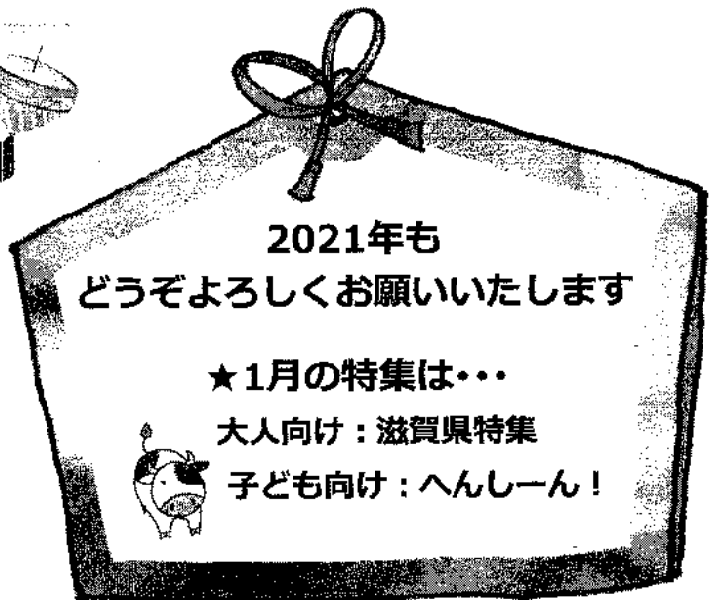 2021年も
どうぞよろしくお願いいたします
★1月の特集は・・・
大人向け：滋賀県特集
子ども向け：へんしーん！